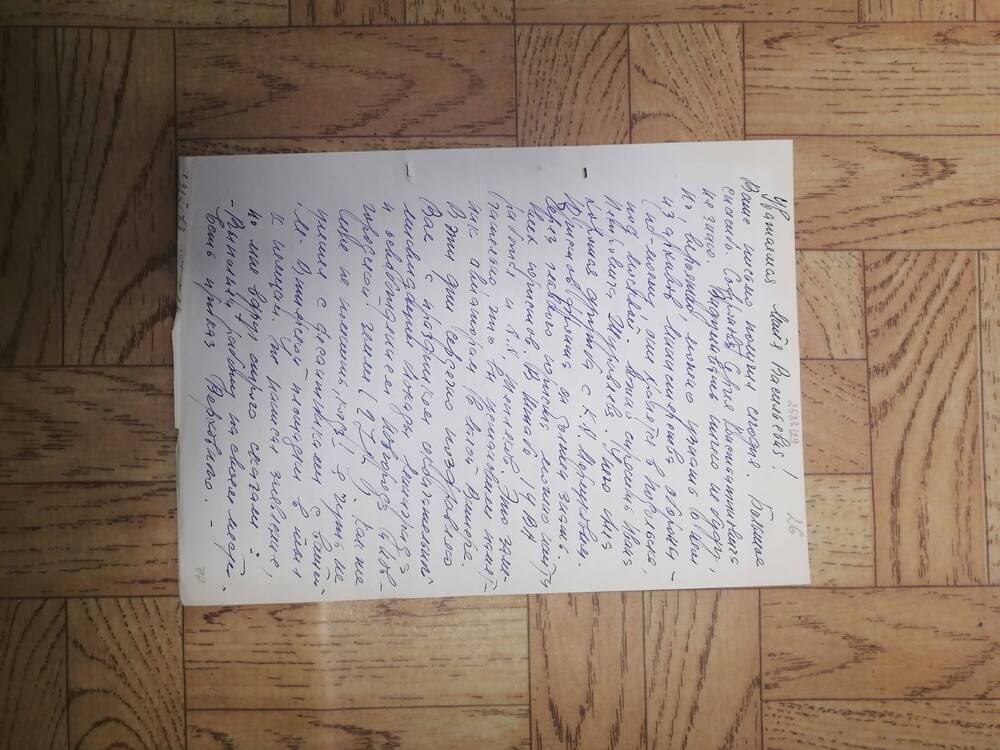 2583/29 26
Уважаемая Майя Васильевна!
Ваше письмо получил сегодня. Большое
спасибо. Софронова Сергея Константиновича
не знаю. Выдумывать ничего не буду,
но, вероятно, можно узнать о нем
из архивов Министерства обороны –
(по-моему, они хранятся в Подольске,
под Москвой. Можно спросить Ивана
Петровича Журавлева. У него была
хорошая дружба с К.А. Мерецковым.
Юристов фронта он должен знать.
Через главного юриста можно найти
всех юристов. В Штабе 14 ВА
работал и А.А. Тепляков. Это заме-
чательно, что вы установили памят-
ник авиаторам в Малой Вишере.
В эти дни сердечно поздравляю
Вас с праздником окончательной
ликвидации блокады Ленинграда
и освобождением Новгорода и Нов-
городской земли (27/I). Как же
мне не помнить, когда я чуть не
улетел с десантниками с вашей
М-Вишерской площадки в тыл
к немцам. Уж написал заявление,
но мне вдруг строго сказали:
– Выполняй работу на своем месте.
Есть приказ Верховного. –
77